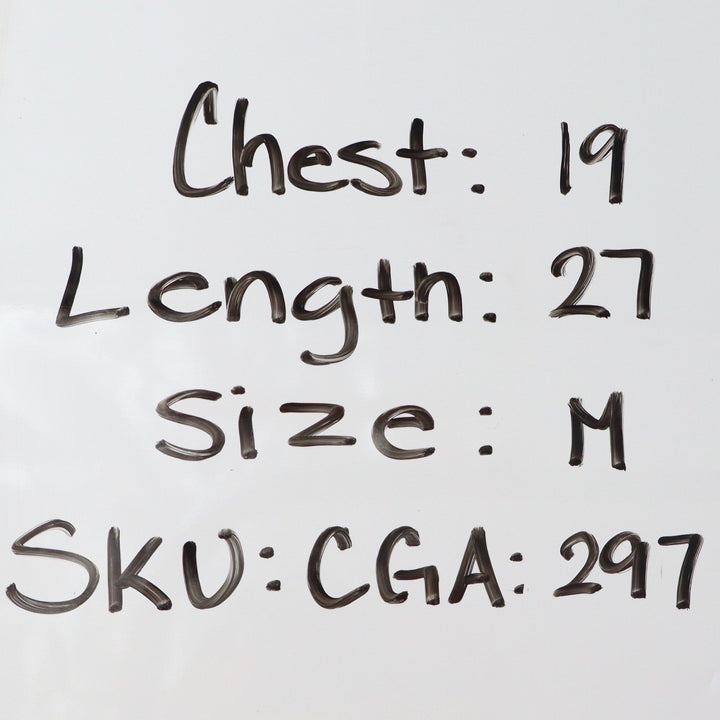 Chest: 19
Length: 27
Size: M
SKU: CGA: 297